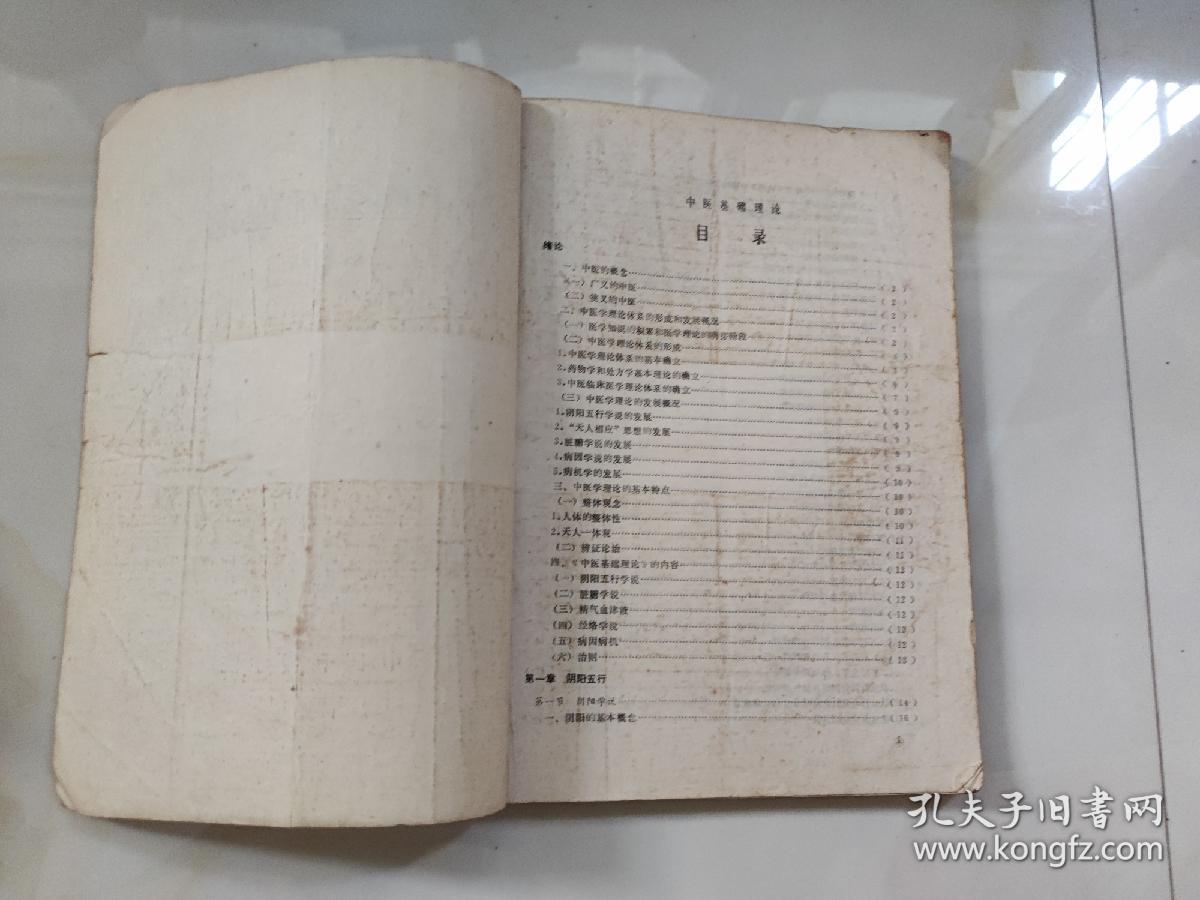 中医基础理论
目 录
绪论
一、中医的概念 (2)
(一)广义的中医 (2)
(二)狭义的中医 (2)
二、中医学理论体系的形成和发展概况 (2)
(一)医学知识的积累和医学理论的萌芽阶段 (2)
(二)中医学理论体系的形成
1.中医学理论体系的基本确立
2.药物学和处方学基本理论的确立
3.中医临床医学理论体系的确立 (7)
(三)中医学理论的发展概况
1.阴阳五行学说的发展 (9)
2.“天人相应”思想的发展 (9)
3.脏腑学说的发展 (9)
4.病因学说的发展 (9)
5.病机学的发展 (10)
三、中医学理论的基本特点 (10)
(一)整体观念 (10)
1.人体的整体性 (10)
2.天人一体观 (11)
(二)辨证论治 (11)
四、《中医基础理论》的内容
(一)阴阳五行学说 (12)
(二)脏腑学说 (12)
(三)精气血津液 (12)
(四)经络学说
(五)病因病机 (12)
(六)治则
第一章 阴阳五行
第一节 阴阳学说 (14)
一、阴阳的基本概念
1
孔夫子旧书网
www.kongfz.com